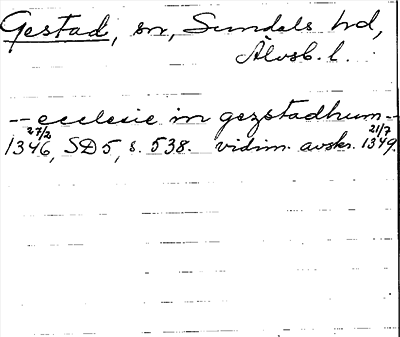 Gestad, sn, Sundals hd,
Älvsb. l.
-- ecclesie in gezstadhum --
1346 27/2, SD 5, s. 538. vidim. avskr. 1349 21/7.